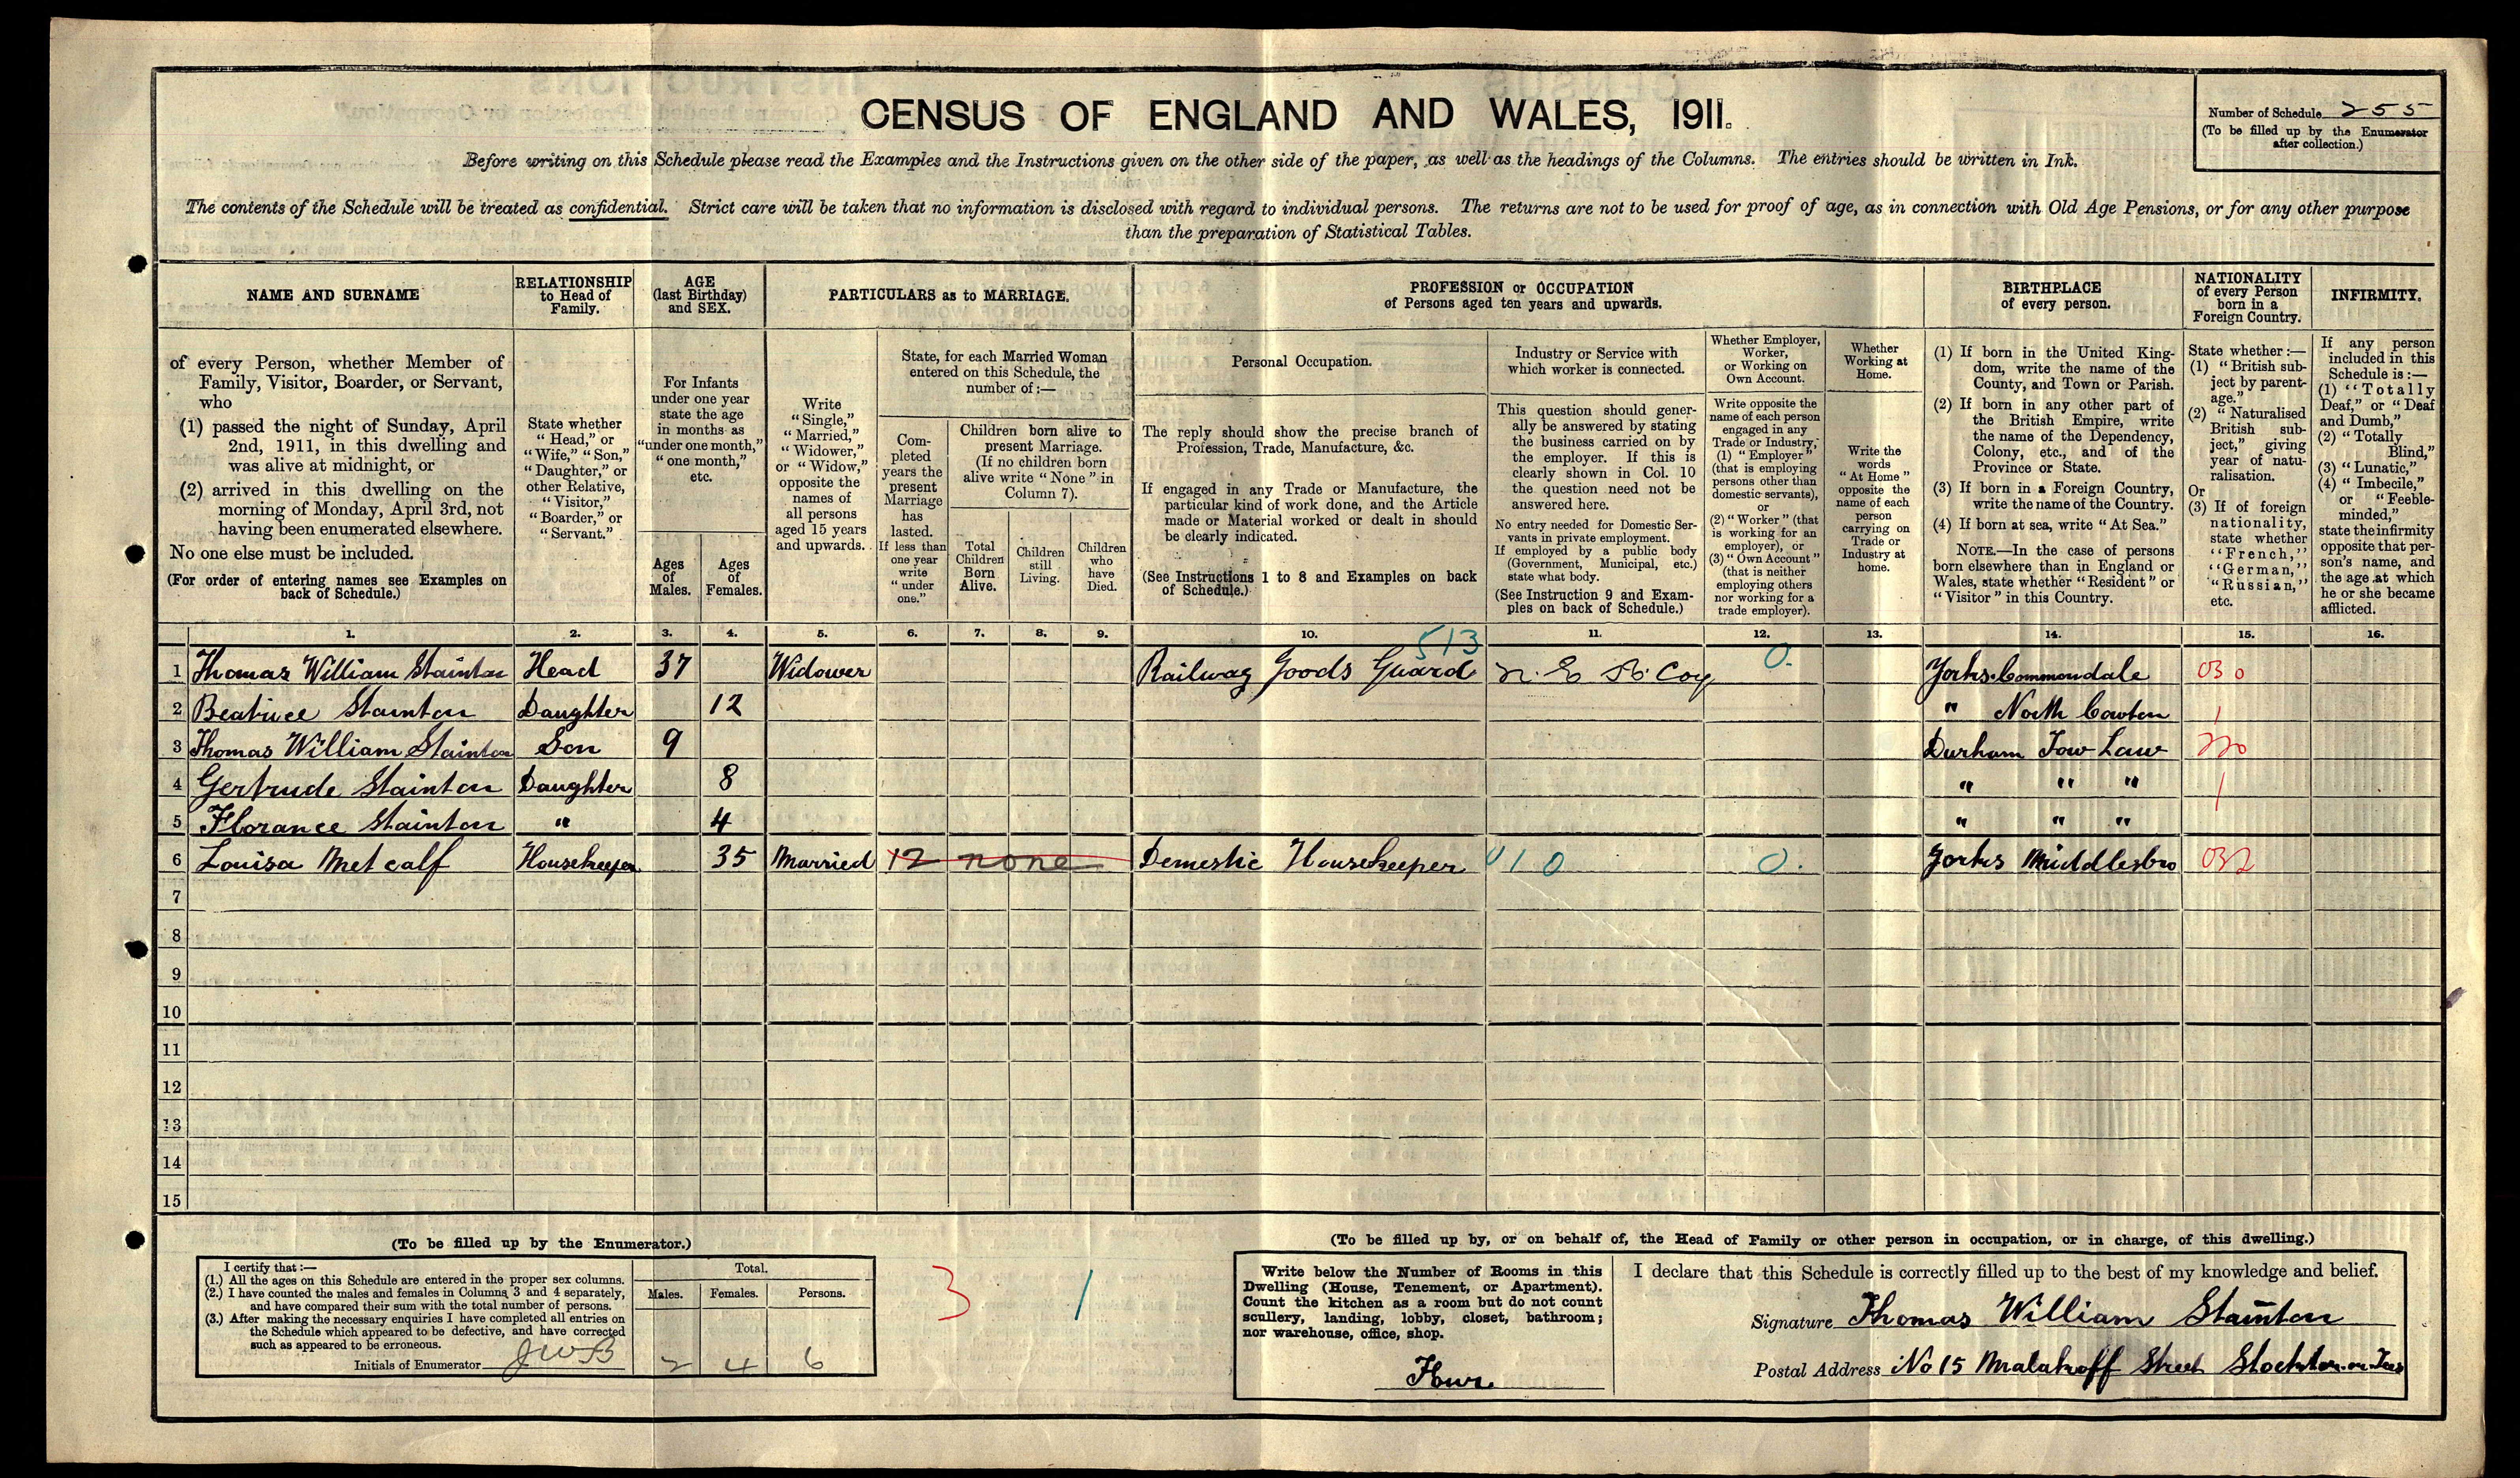 CENSUS OF ENGLAND AND WALES, 1911.
Number of Schedule 255
(To be filled up by the Enumerator
after collection.)
Before writing on this Schedule please read the Examples and the Instructions given on the other side of the paper, as well as the headings of the Columns. The entries should be written in Ink.
The contents of the Schedule will be treated as confidential. Strict care will be taken that no information is disclosed with regard to individual persons. The returns are not to be used for proof of age, as in connection with Old Age Pensions, or for any other purpose
than the preparation of Statistical Tables.
NAME AND SURNAME
of every Person, whether Member of
Family, Visitor, Boarder, or Servant,
who
(1) passed the night of Sunday, April
2nd, 1911, in this dwelling and
was alive at midnight, or
(2) arrived in this dwelling on the
morning of Monday, April 3rd, not
having been enumerated elsewhere.
No one else must be included.
(For order of entering names see Examples on
back of Schedule.)
RELATIONSHIP
to Head of
Family.
State whether
"Head," or
"Wife," "Son,"
"Daughter," or
other Relative,
"Visitor,"
"Boarder," or
"Servant."
AGE
(last Birthday)
and SEX.
For Infants
under one year
state the age
in months as
"under one month,"
"one month,"
etc.
Ages
of
Males.
Ages
of
Females.
PARTICULARS as to MARRIAGE.
Write
"Single,"
"Married,"
"Widower,"
or "Widow,"
opposite the
names of
all persons
aged 15 years
and upwards.
State, for each Married Woman
entered on this Schedule, the
number of:—
Com-
pleted
years the
present
Marriage
has
lasted.
If less than
one year
write
"under
one."
Children born alive to
present Marriage.
(If no children born
alive write "None" in
Column 7).
Total
Children
Born
Alive.
Children
still
Living.
Children
who
have
Died.
PROFESSION or OCCUPATION
of Persons aged ten years and upwards.
Personal Occupation.
The reply should show the precise branch of
Profession, Trade, Manufacture, &c.
If engaged in any Trade or Manufacture, the
particular kind of work done, and the Article
made or Material worked or dealt in should
be clearly indicated.
(See Instructions 1 to 8 and Examples on back
of Schedule.)
Industry or Service with
which worker is connected.
This question should gener-
ally be answered by stating
the business carried on by
the employer. If this is
clearly shown in Col. 10
the question need not be
answered here.
No entry needed for Domestic Ser-
vants in private employment.
If employed by a public body
(Government, Municipal, etc.)
state what body.
(See Instruction 9 and Exam-
ples on back of Schedule.)
Whether Employer,
Worker,
or Working on
Own Account.
Write opposite the
name of each person
engaged in any
Trade or Industry,
(1) "Employer"
(that is employing
persons other than
domestic servants),
or
(2) "Worker" (that
is working for an
employer), or
(3) "Own Account"
(that is neither
employing others
nor working for a
trade employer).
Whether
Working at
Home.
Write the
words
"At Home"
opposite the
name of each
person
carrying on
Trade or
Industry at
home.
BIRTHPLACE
of every person.
(1) If born in the United King-
dom, write the name of the
County, and Town or Parish.
(2) If born in any other part of
the British Empire, write
the name of the Dependency,
Colony, etc., and of the
Province or State.
(3) If born in a Foreign Country,
write the name of the Country.
(4) If born at sea, write "At Sea."
NOTE.—In the case of persons
born elsewhere than in England or
Wales, state whether "Resident" or
"Visitor" in this Country.
NATIONALITY
of every Person
born in a
Foreign Country.
State whether :—
(1) "British sub-
ject by parent-
age."
(2) "Naturalised
British sub-
ject," giving
year of natu-
ralisation.
Or
(3) If of foreign
nationality,
state whether
"French,"
"German,"
"Russian,"
etc.
INFIRMITY.
If any person
included in this
Schedule is :—
(1) "Totally
Deaf," or "Deaf
and Dumb,"
(2) "Totally
Blind,"
(3) "Lunatic,"
(4) "Imbecile,"
or "Feeble-
minded,"
state the infirmity
opposite that per-
son's name, and
the age at which
he or she became
afflicted.
1. 2. 3. 4. 5. 6. 7. 8. 9. 10. 11. 12. 13. 14. 15. 16.
513
1 Thomas William Stainton Head 37 Widower Railway Goods Guard N. E R. Coy 0. Yorks. Commondale 030
2 Beatrice Stainton Daughter 12 " North Cowton 1
3 Thomas William Stainton Son 9 Durham Tow Law 220
4 Gertrude Stainton Daughter 8 " " " 1
5 Florance Stainton " 4 " " "
6 Louisa Metcalf Housekeeper 35 Married 12 none Demestic Housekeeper 010 0. Yorks Middlesbro 032
7
8
9
10
11
12
13
14
15
(To be filled up by the Enumerator.)
I certify that :—
(1.) All the ages on this Schedule are entered in the proper sex columns.
(2.) I have counted the males and females in Columns 3 and 4 separately,
and have compared their sum with the total number of persons.
(3.) After making the necessary enquiries I have completed all entries on
the Schedule which appeared to be defective, and have corrected
such as appeared to be erroneous.
Initials of Enumerator JWB
Total.
Males. Females. Persons.
2 4 6
3 1
(To be filled up by, or on behalf of, the Head of Family or other person in occupation, or in charge, of this dwelling.)
Write below the Number of Rooms in this
Dwelling (House, Tenement, or Apartment).
Count the kitchen as a room but do not count
scullery, landing, lobby, closet, bathroom;
nor warehouse, office, shop.
Four
I declare that this Schedule is correctly filled up to the best of my knowledge and belief.
Signature Thomas William Stainton
Postal Address No 15 Malakoff Street Stockton-on-Tees